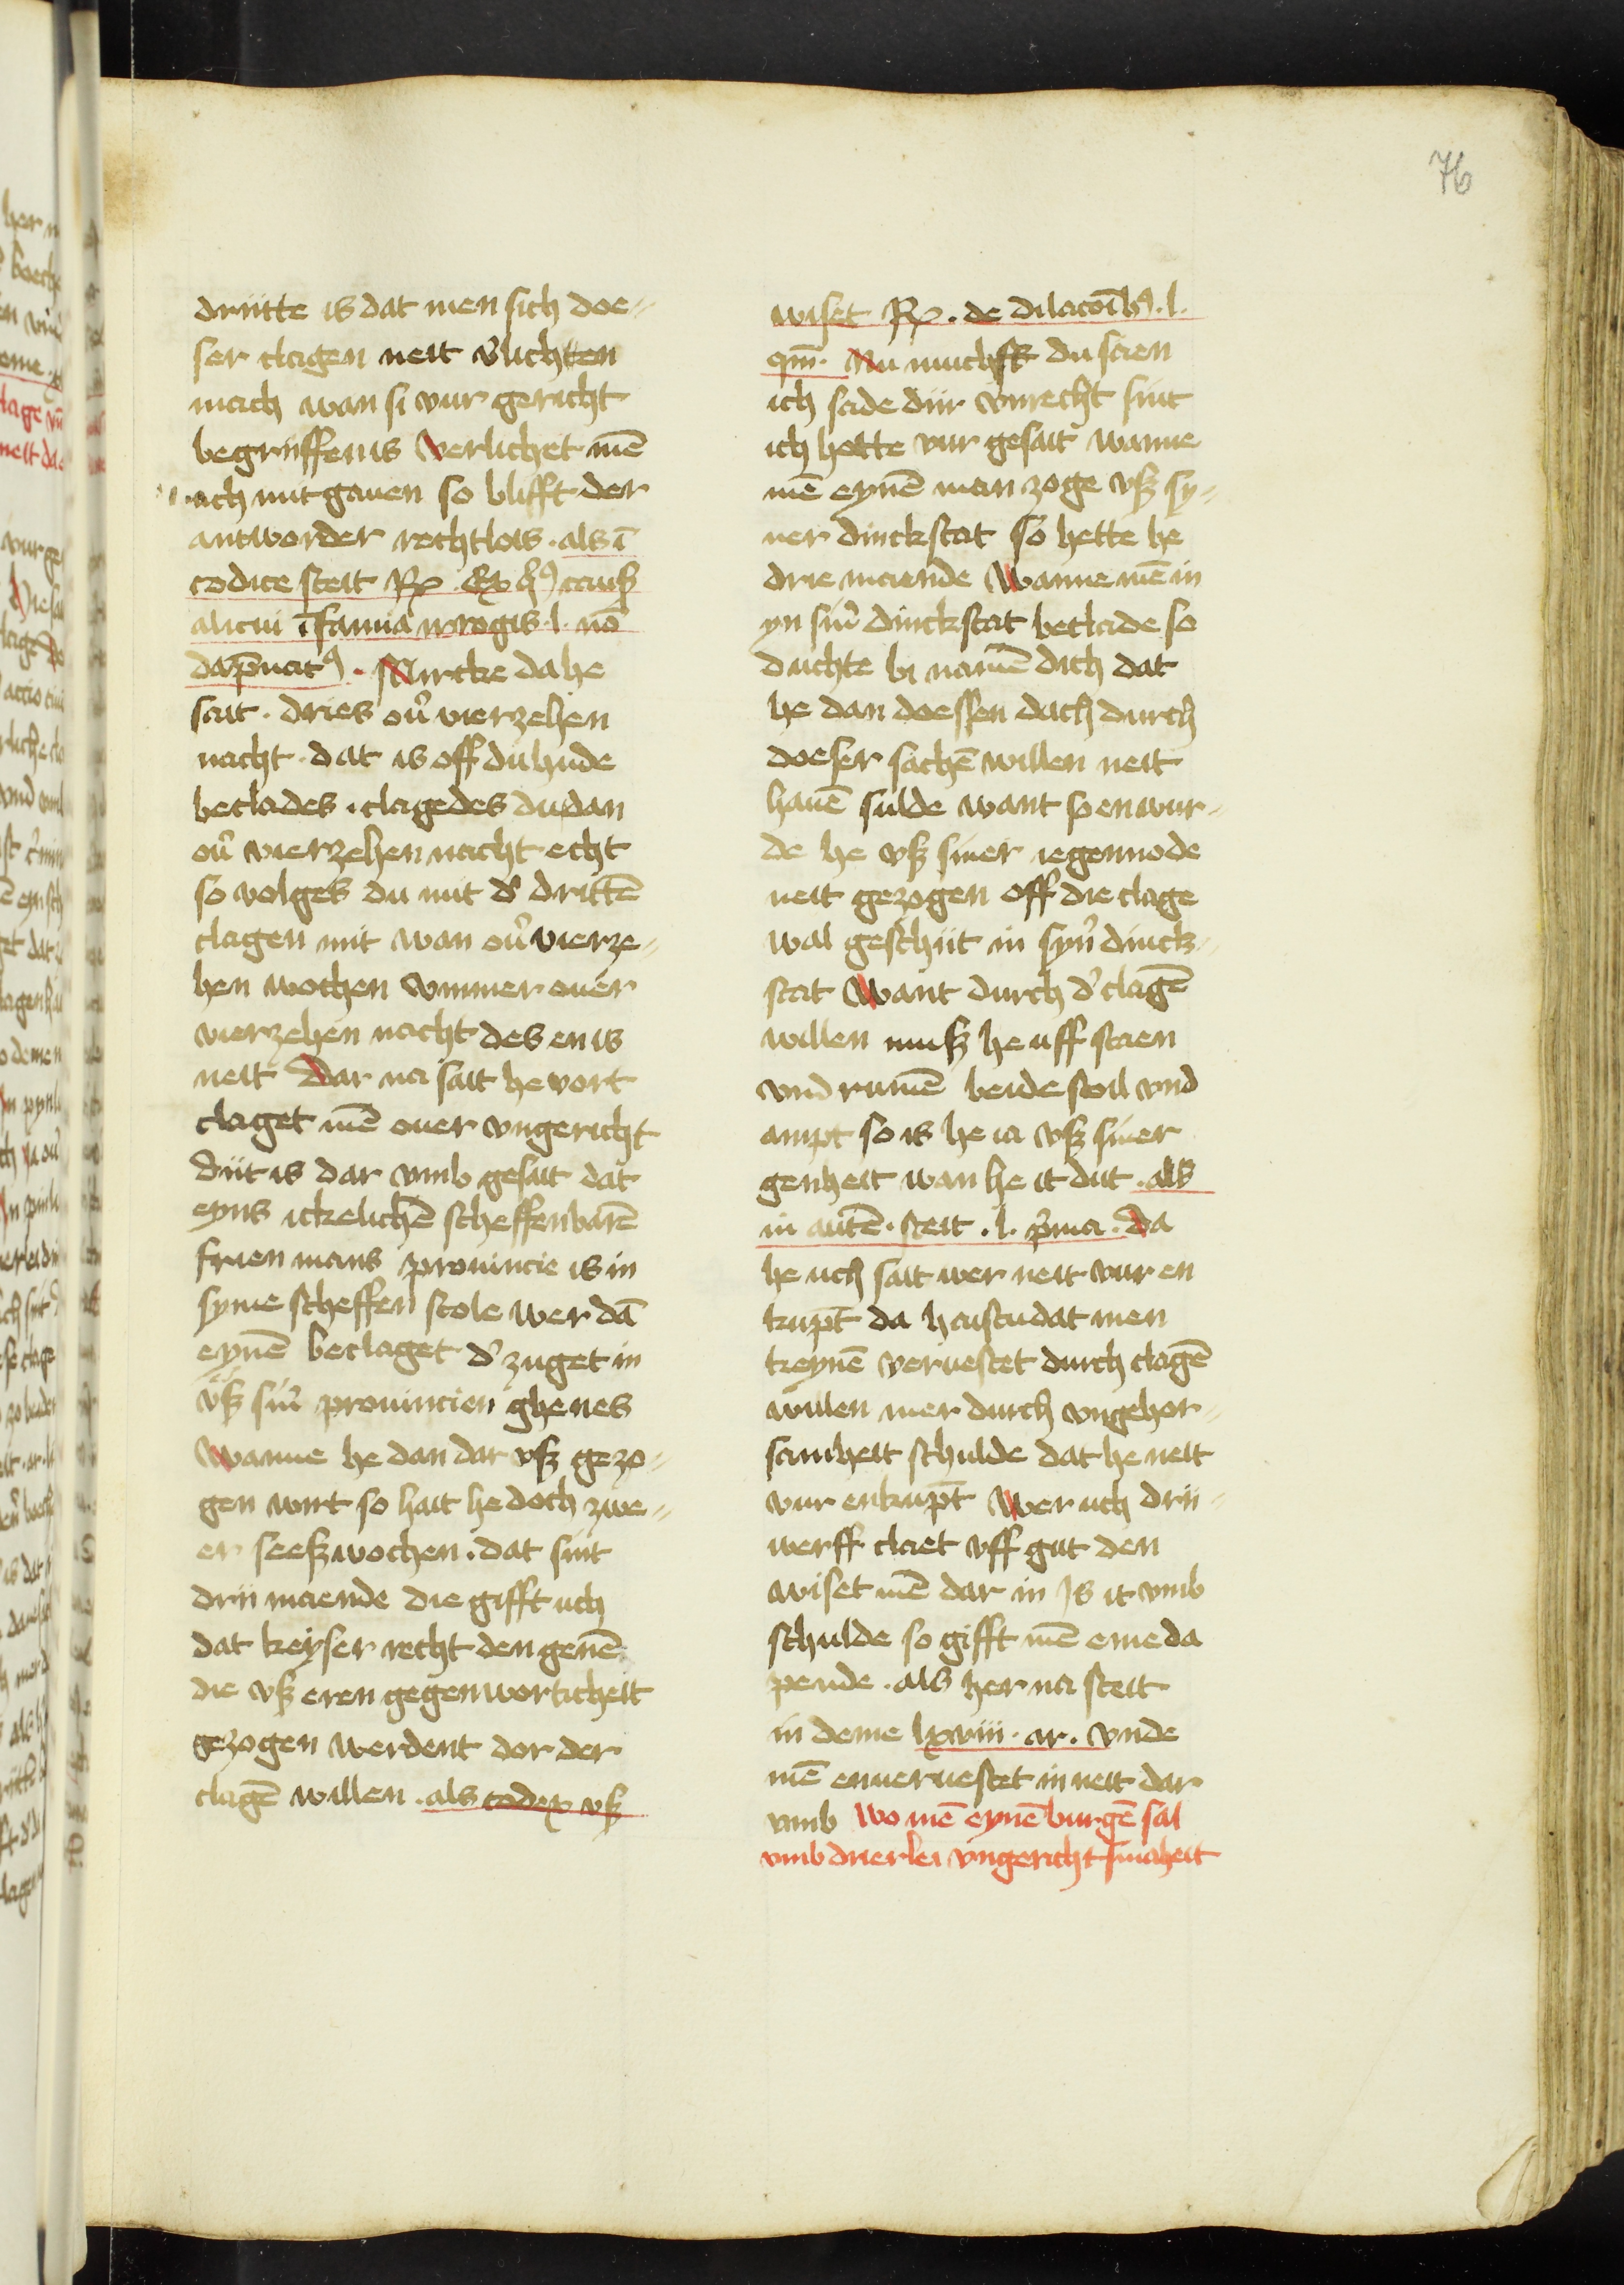 76
drutte is dat men sich doe-
ser clagen neit v̉lichten
mach wan si vur gericht
begriiffen is Verlichet mē
ach mit gauen so blifft der
antworder rechtlois. als ī
codice steit Rx. Ex q̄ꝰ cauß
alicui īfamia irrogis. l. nō
dāpnatꝰ. Mircke da he
sait. dries ou̓ vierzehen
nacht. dat is off du hude
beclades. clagedes du dan
ou̓ vierzehen nacht echt
so volges du mit d̓ drittē
clagen mit wan ou̓ vierze-
hen wochen vmmer ouer
vierzehen nacht des en is
neit Dar na sait he vort
claget mē ouer vngericht
diit is dar vmb gesait dat
eyns ickelichē scheffenbarē
frien mans prouincie is in
syme scheffen stole wer dā
eynē beclaget d̓ zuget in
vß sin̓ prouincien ghenes
Wanne he dan dar vß gezo-
gen wirt so hait he doch zwe-
er seeßwochen. dat sint
drii maende die gifft uch
dat keyser recht den genē
die vß eren gegenworticheit
gezogen werdent dor der
clagē willen. als codex vß
wiset Rx. de dilacoībꝰ. l.
qm̄. Nu muchstu saen
ich sade diir vnrecht sint
ich hette vur gesait wanne
mē eynē man zoge vß sy-
ner dinckstat so hette he
drie maende Wanne mē in
yn sin̓ dinckstat beclade so
duchte bi namē dich dat
he dan doessen dach durch
doeser sachē willen neit
hauē sulde want so en wur-
de he vß siner iegennode
neit gezogen off die clage
wal geschiit in syn̓ dinck-
stat Want durch d̓ clagē
willen muß he uff staen
vnd rumē beide stoil vnd
ampt so is he ia vß siner
genheit wan he it dut. als
in autē. steit. l. p̓ma. Da
he uch sait wer neit vur en
kūpt da haistu dat men
keynē veruestet durch clagē
willen mer durch vngehor-
samheit schulde dat he neit
vur enkūpt Wer uch drii-
werff claet vff gut den
wiset mē dar in Is it vmb
schulde so gifft mē eme da
pende. als her na steit
in deme lxviii. ar. vnde
mē enueruestet in neit dar
vmb Wo mē eynē burgē sal
vmb drierlei vngericht smaheit